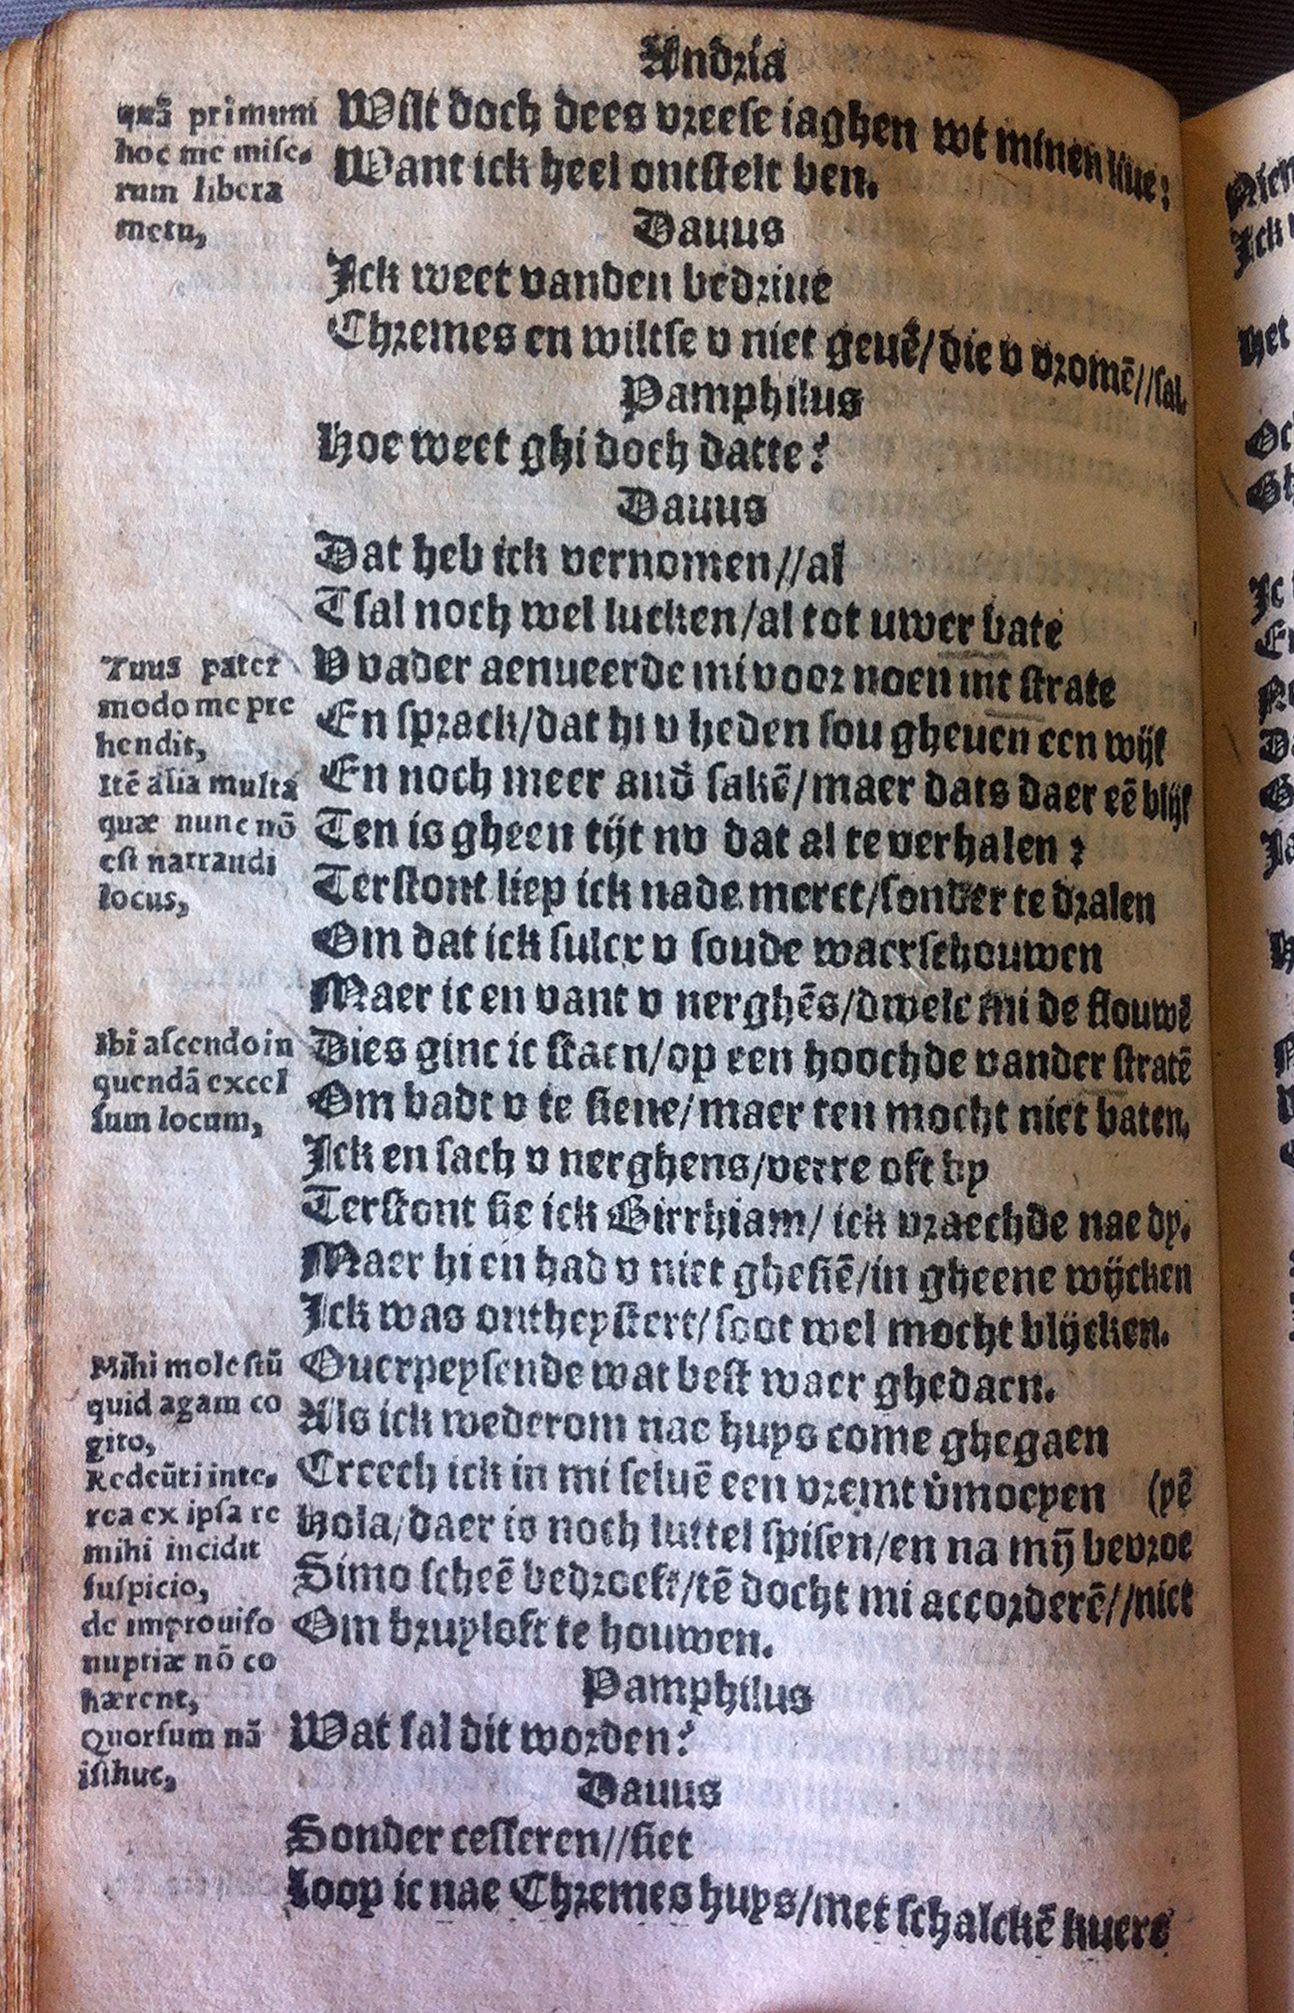 Andria
quã primum
hoc me mise-
rum libera
metu,
Wilt doch dees vreese iaghen wt minen liue:
Want ick heel ontstelt ben.
Dauus
Ick weet vanden bedriue
Chremes en wiltse v niet geuẽ/die v vromẽ//sal.
Pamphilus
Hoe weet ghi doch datte?
Dauus
Dat heb ick vernomen//al
Tsal noch wel lucken/al tot uwer bate
Tuus pater
modo me pre
hendit,
Itẽ alia multa
quæ nunc nõ
est narrandi
locus,
V vader aenueerde mi voor noen int strate
En sprack/dat hi v heden sou gheuen een wijf
En noch meer and̉ sakẽ/maer dats daer eẽ blijf
Ten is gheen tijt nv dat al te verhalen:
Terstont liep ick nade merct/sonder te dralen
Om dat ick sulcx v soude waerschouwen
Maer ic en vant v nerghẽs/dwelc mi de flouwẽ
Ibi ascendo in
quendã excel
sum locum,
Dies ginc ic staen/op een hoochde vander stratẽ
Om vadt v te siene/maer ten mocht niet baten.
Ick en sach v nerghens/verre oft by
Terstont sie ick Birrhiam/ ick vraechde nae dy.
Maer hi en had v niet ghesiẽ/in gheene wijcken
Ick was ontheystert/soot wel mocht blijcken.
Mihi molestũ
quid agam co
gito,
Redeũti inte-
rea ex ipsa re
mihi incidit
suspicio,
de improuiso
nuptiæ nõ co
hærent,
Quorsum nã
isthuc,
Ouerpeysende wat best waer ghedaen.
Als ick wederom nae huys come ghegaen
Creech ick in mi seluẽ een vremt v̉moeyen (pẽ
Hola/daer is noch luttel spisen/en na mijn bevroe
Simo scheẽ bedroeft/tẽ docht mi accorderẽ//niet
Om bruyloft te houwen.
Pamphilus
Wat sal dit worden?
Dauus
Sonder cesseren//siet
Loop ic nae Chremes huys/met schalckẽ kuere